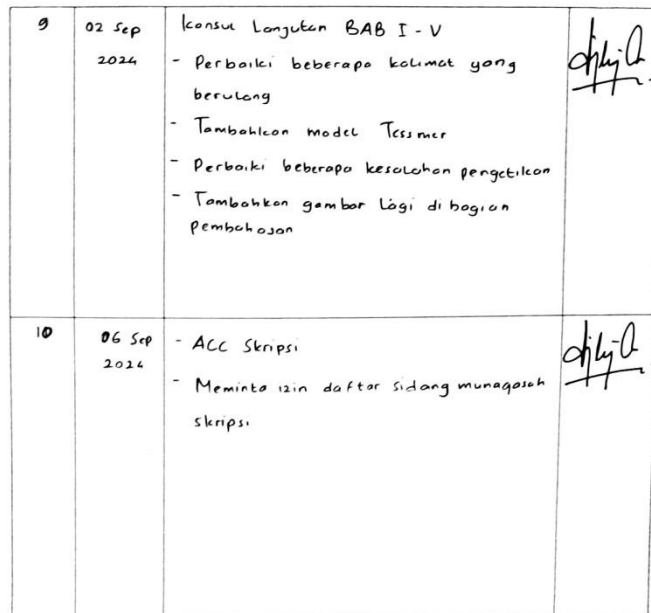 9
02 Sep
2024
Konsul Lanjutan BAB I - V
- Perbaiki beberapa kalimat yang
berulang
- Tambahkan model Tessmer
- Perbaiki beberapa kesalahan pengetikan
- Tambahkan gambar lagi di bagian
pembahasan
10
06 Sep
2024
- ACC Skripsi
- Meminta izin daftar sidang munaqosah
skripsi